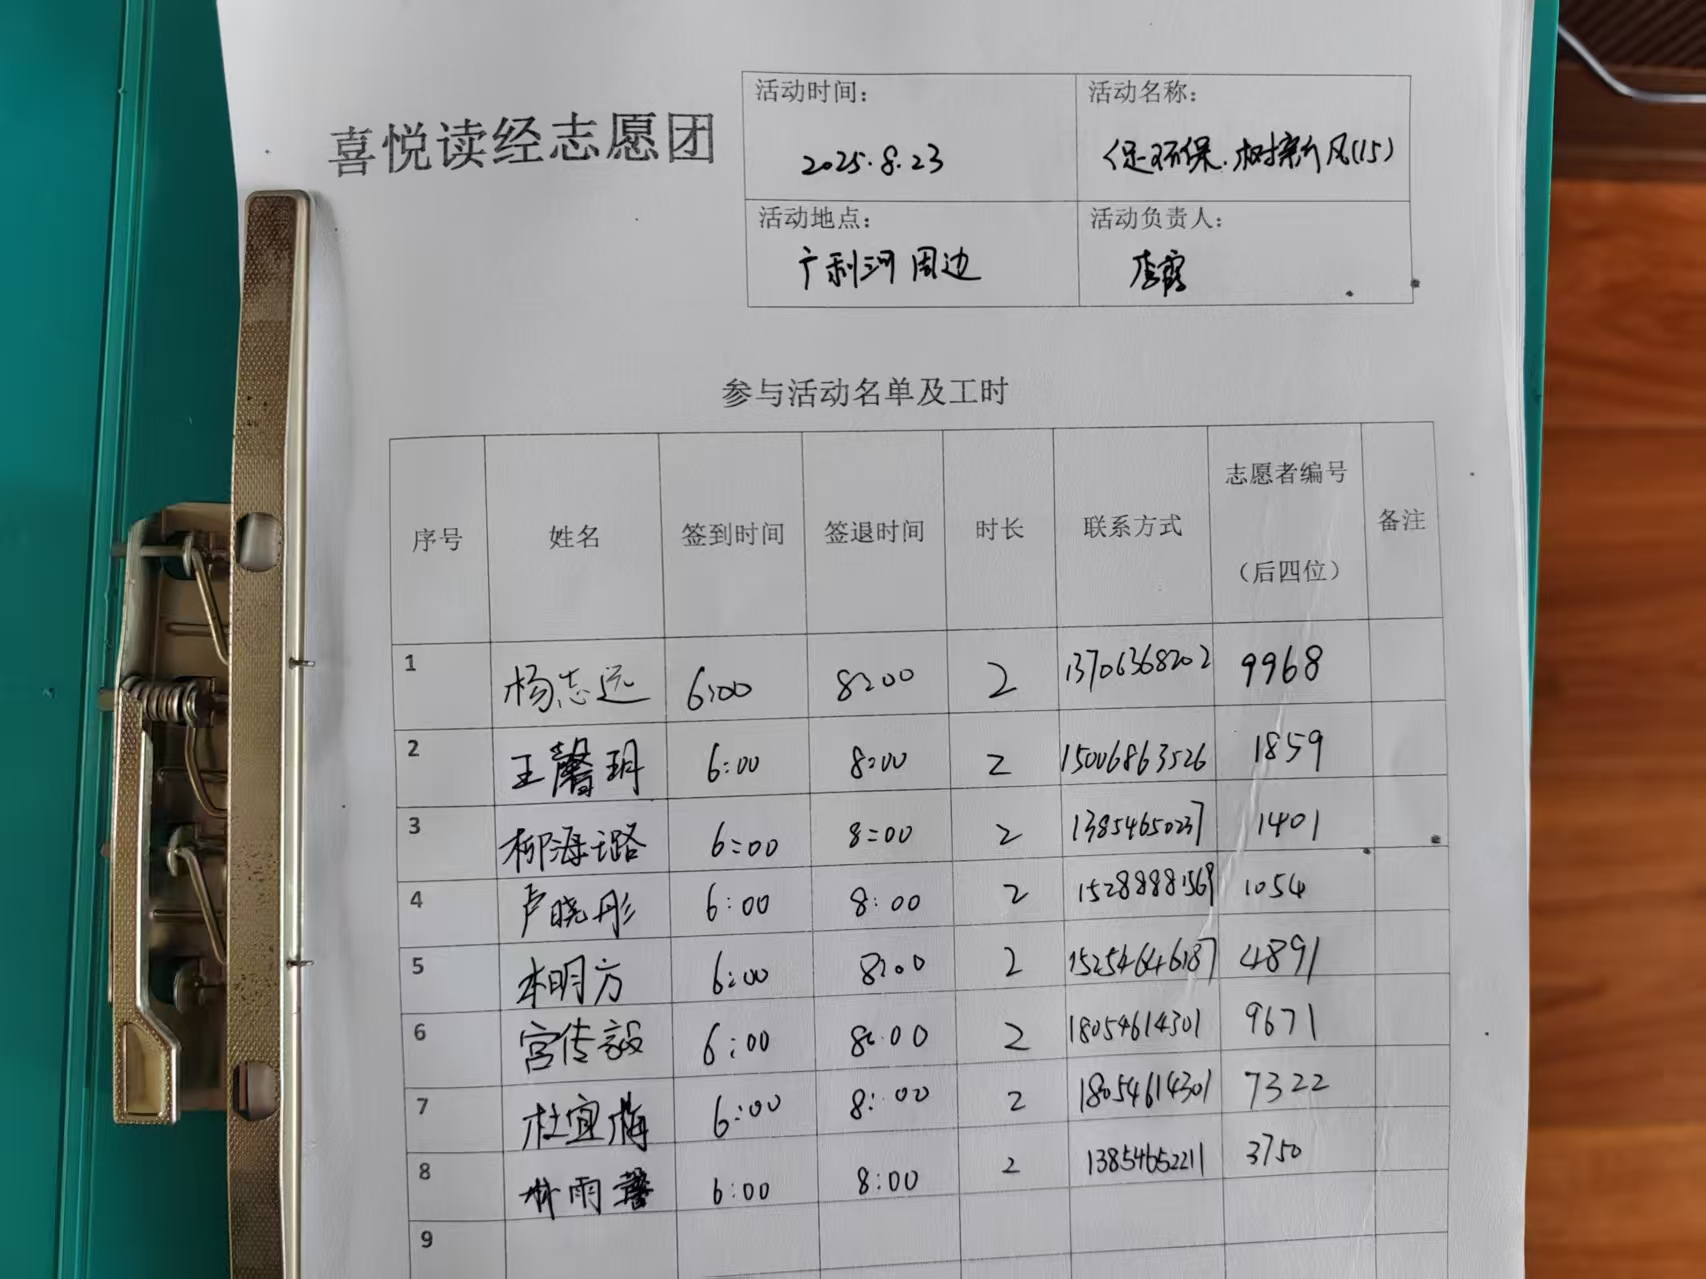 喜悦读经志愿团
活动时间：
2025.8.23
活动名称：
促环保.树新风(15)
活动地点：
广利河周边
活动负责人：
李霞
参与活动名单及工时
序号 姓名 签到时间 签退时间 时长 联系方式 志愿者编号（后四位） 备注
1 杨志远 6:00 8:00 2 13706368202 9968
2 王馨玥 6:00 8:00 2 15006863526 1859
3 柳海璐 6:00 8:00 2 13854650237 1401
4 卢晓彤 6:00 8:00 2 15288881569 1054
5 明方 6:00 8:00 2 15254646187 4891
6 宫传毅 6:00 8:00 2 18054614301 9671
7 杜宜梅 6:00 8:00 2 18054614301 7322
8 林雨馨 6:00 8:00 2 13854652211 3750
9